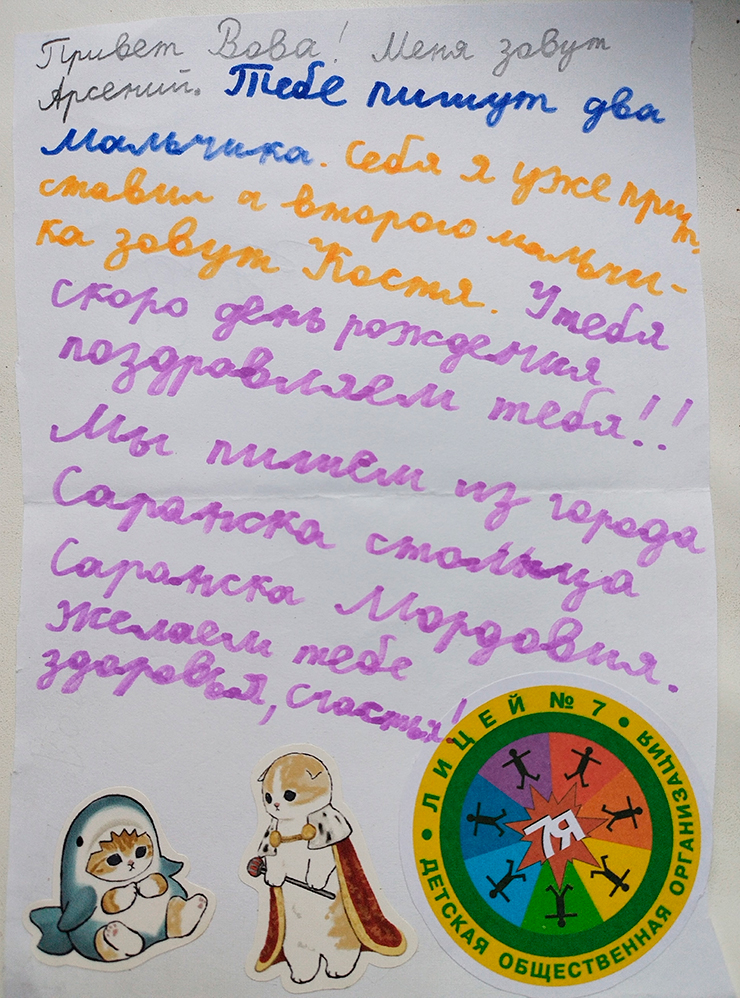 Привет Вова! Меня зовут
Арсений. Тебе пишут два
мальчика. Себя я уже при
ставил а второго мальчи-
ка зовут Костя. У тебя
скоро день рождения
поздравляем тебя!!
Мы пишем из города
Саранска столица
Саранска Мордовия.
Желаем тебе
здоровья, счастья!
ЛИЦЕЙ № 7
ДЕТСКАЯ ОБЩЕСТВЕННАЯ ОРГАНИЗАЦИЯ
7Я